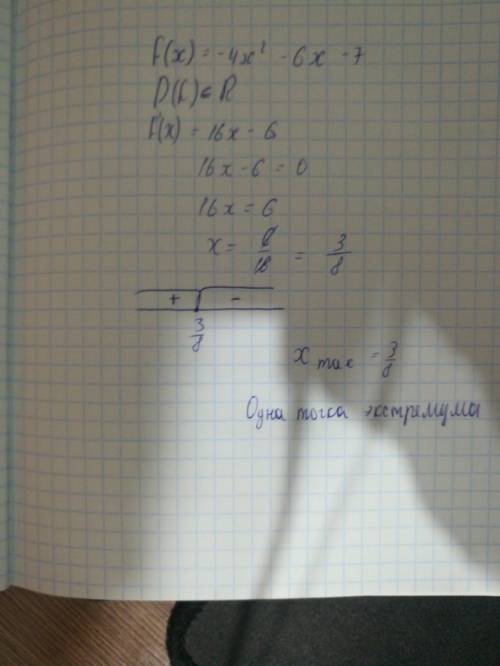 f(x) = -4x² - 6x - 7
D(f) ∈ R
f'(x) = 16x - 6
16x - 6 = 0
16x = 6
x = 6/16 = 3/8
+ -
3/8
x max = 3/8
Одна точка экстремума